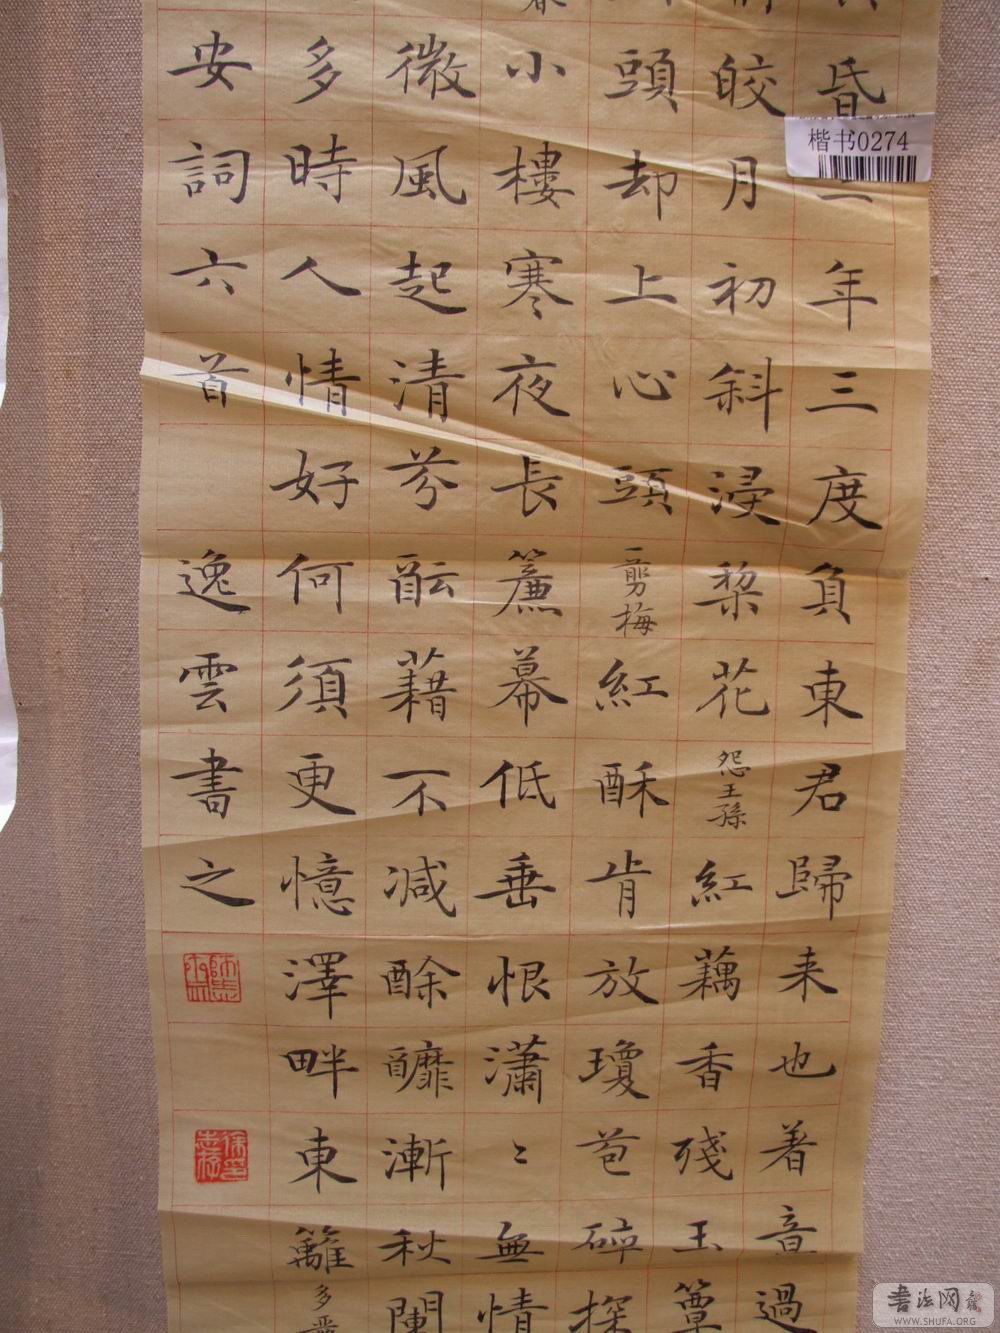 昏
一年三度負東君歸来也著意過
皎月初斜浸棃花怨王孫紅藕香殘玉簟
頭却上心頭一剪梅紅酥肯放瓊苞碎探
小樓寒夜長簾幕低垂恨瀟〻無情
微風起清芬醖藉不減酴醾漸秋闌
多時人情好何須更憶澤畔東籬多麗
安詞六首逸雲書之
楷书0274
书法网
WWW.SHUFA.ORG